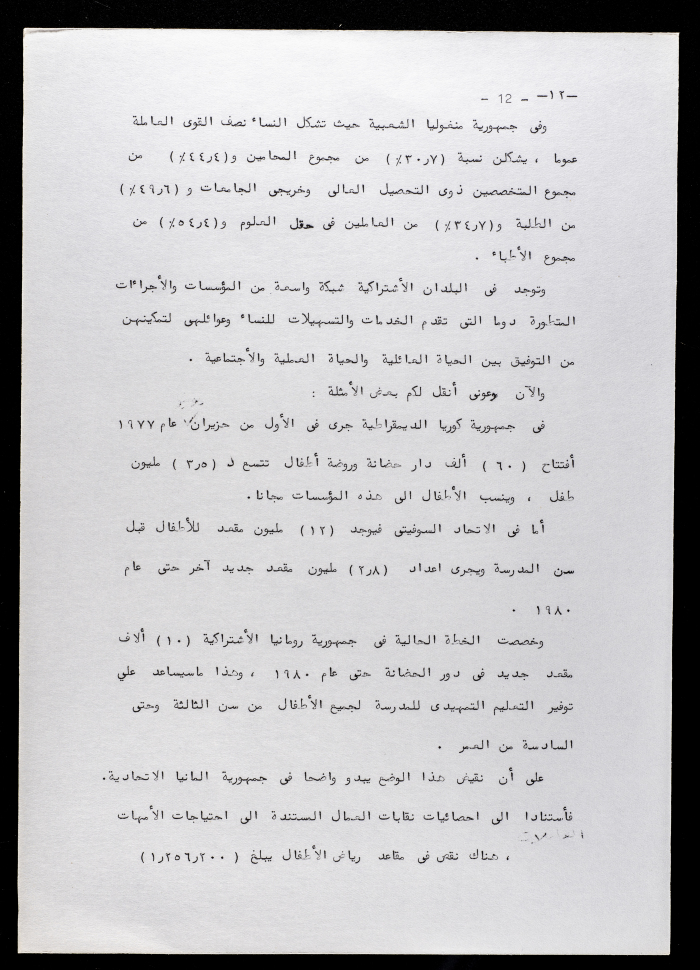 -١٢- - 12 -
وفى جمهورية منغوليا الشعبية حيث تشكل النساء نصف القوى العاملة
عموما ، يشكلن نسبة (٣٠٫٧٪) من مجموع المحامين و(٤٤٫٤٪) من
مجموع المتخصصين ذوى التحصيل العالى وخريجى الجامعات و (٤٩٫٦٪)
من الطلبة و(٣٤٫٧٪) من العاملين فى حقل العلوم و(٥٤٫٤٪) من
مجموع الأطباء .
وتوجد فى البلدان الأشتراكية شبكة واسعة من المؤسسات والأجراءات
المتطورة دوما التى تقدم الخدمات والتسهيلات للنساء وعوائلهى لتمكينهن
من التوفيق بين الحياة العائلية والحياة العملية والأجتماعية .
والآن دعونى أنقل لكم بعض الأمثلة :
فى جمهورية كوريا الديمقراطية جرى فى الأول من حزيران عام ١٩٧٧
أفتتاح (٦٠) ألف دار حضانة وروضة أطفال تتسع لـ (٣٫٥) مليون
طفل ، وينسب الأطفال الى هذه المؤسسات مجانا.
أما فى الاتحاد السوفيتى فيوجد (١٢) مليون مقعد للأطفال قبل
سن المدرسة ويجرى اعداد (٢٫٨) مليون مقعد جديد آخر حتى عام
١٩٨٠ .
وخصصت الخطة الحالية فى جمهورية رومانيا الأشتراكية (١٠) ألاف
مقعد جديد فى دور الحضانة حتى عام ١٩٨٠ ، وهذا ماسيساعد علي
توفير التعليم التمهيدى للمدرسة لجميع الأطفال من سن الثالثة وحتى
السادسة من العمر .
على أن نقيض هذا الوضع يبدو واضحا فى جمهورية المانيا الاتحادية.
فأستنادا الى احصائيات نقابات العمال المستندة الى احتياجات الأمهات
العاملات
، هناك نقص فى مقاعد رياض الأطفال يبلغ (١٫٢٥٦٫٢٠٠)